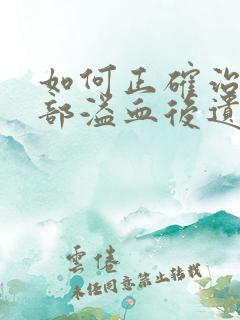 如何正確治
部溢血後遺
雲倦
未經同意禁止轉載